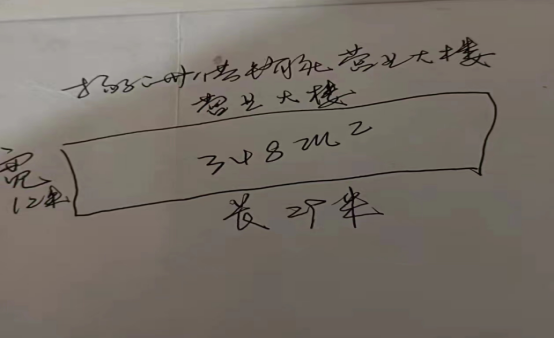 营业大楼
营业大楼
348m2
宽
12米
长29米